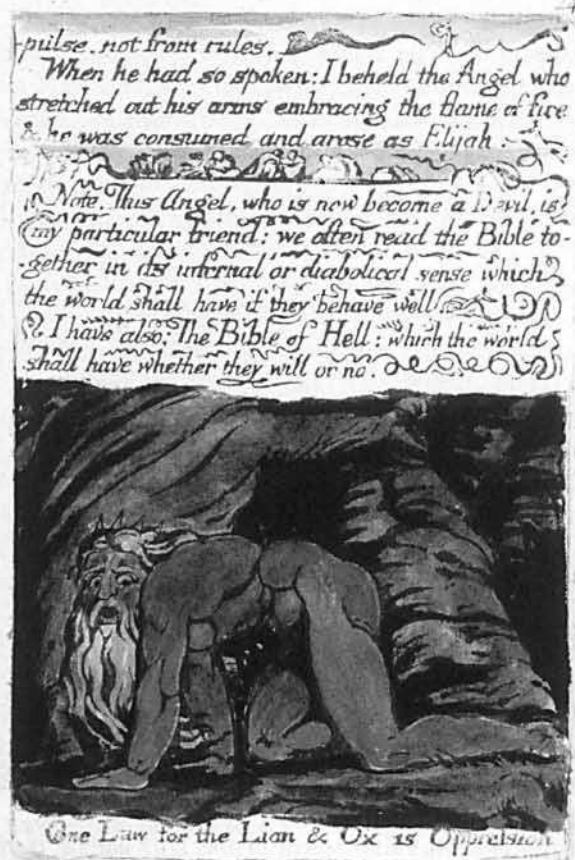 pulse. not from rules.
When he had so spoken: I beheld the Angel who
stretched out his arms embracing the flame of fire
& he was consumed and arose as Elijah.
Note. This Angel, who is now become a Devil, is
my particular friend: we often read the Bible to-
-gether in its infernal or diabolical sense which
the world shall have if they behave well
I have also: The Bible of Hell: which the world
shall have whether they will or no.
One Law for the Lion & Ox is Oppression